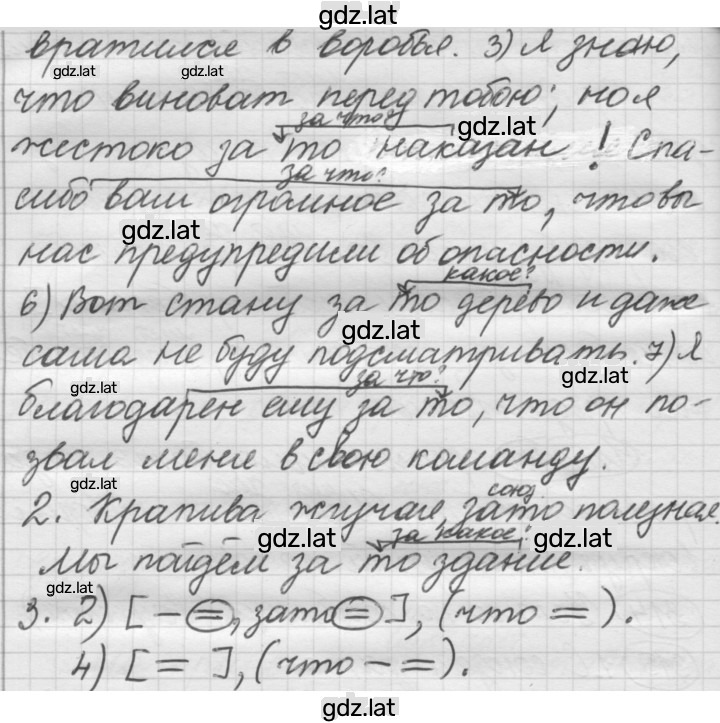 gdz.lat
вратился в воробья. 3) Я знаю,
gdz.lat gdz.lat
что виноват перед тобою; но я
за что?
gdz.lat
жестоко за то наказан! Спа-
за что?
сибо вам огромное за то, что вы
gdz.lat
нас предупредили об опасности.
какое?
6) Вот стану за то дерево и даже
gdz.lat
сама не буду подсматривать. 7) Я
gdz.lat за что? gdz.lat
благодарен ему за то, что он по-
звал меня в свою команду.
gdz.lat союз
2. Крапива жгучая зато полезная
gdz.lat за какое? gdz.lat
Мы пойдём за то здание.
gdz.lat
3. 2) [ – =, зато = ], (что = ).
4) [ = ], (что – = ).
gdz.lat